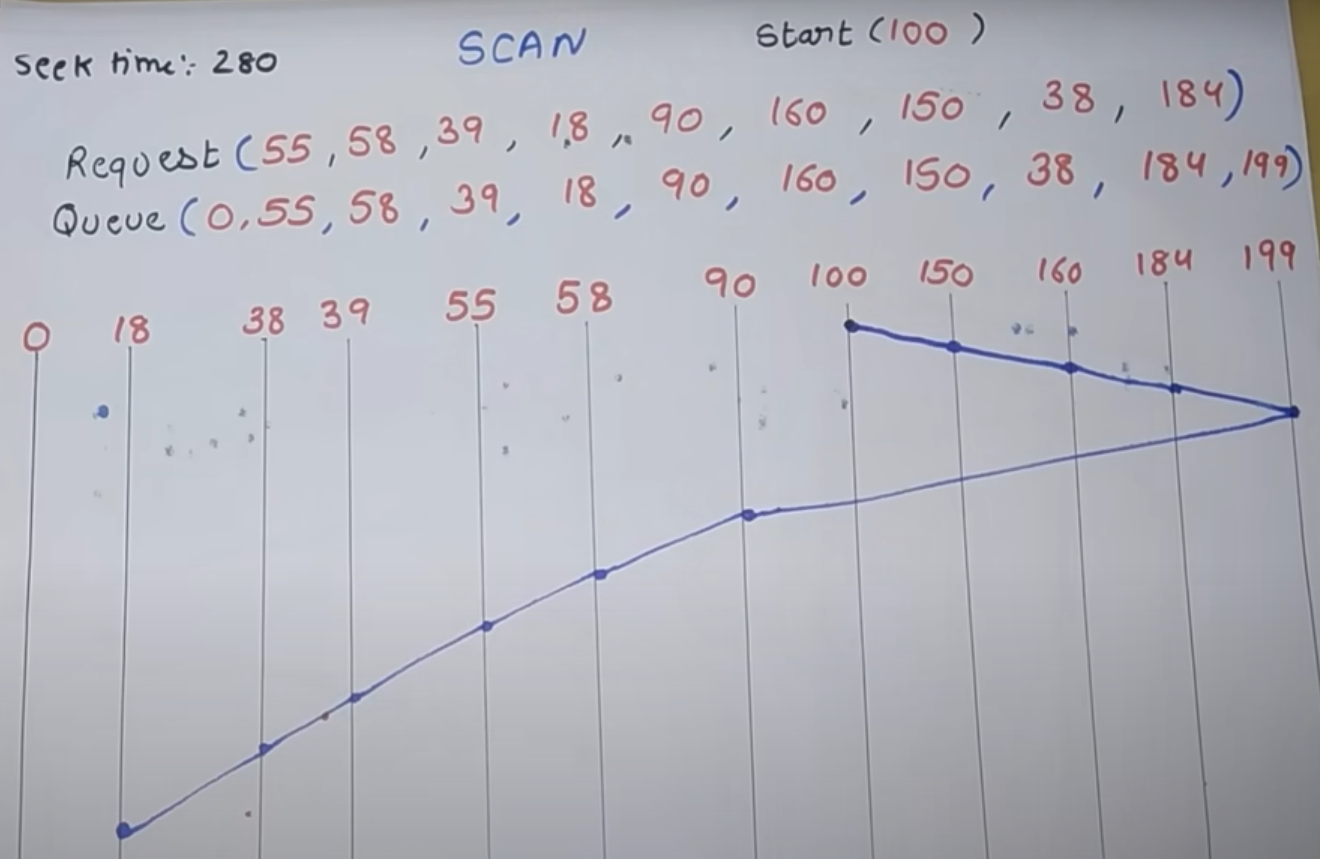 Seek time:- 280 SCAN Start (100 )
Request (55, 58, 39, 18, 90, 160, 150, 38, 184)
Queue (0, 55, 58, 39, 18, 90, 160, 150, 38, 184, 199)
0 18 38 39 55 58 90 100 150 160 184 199